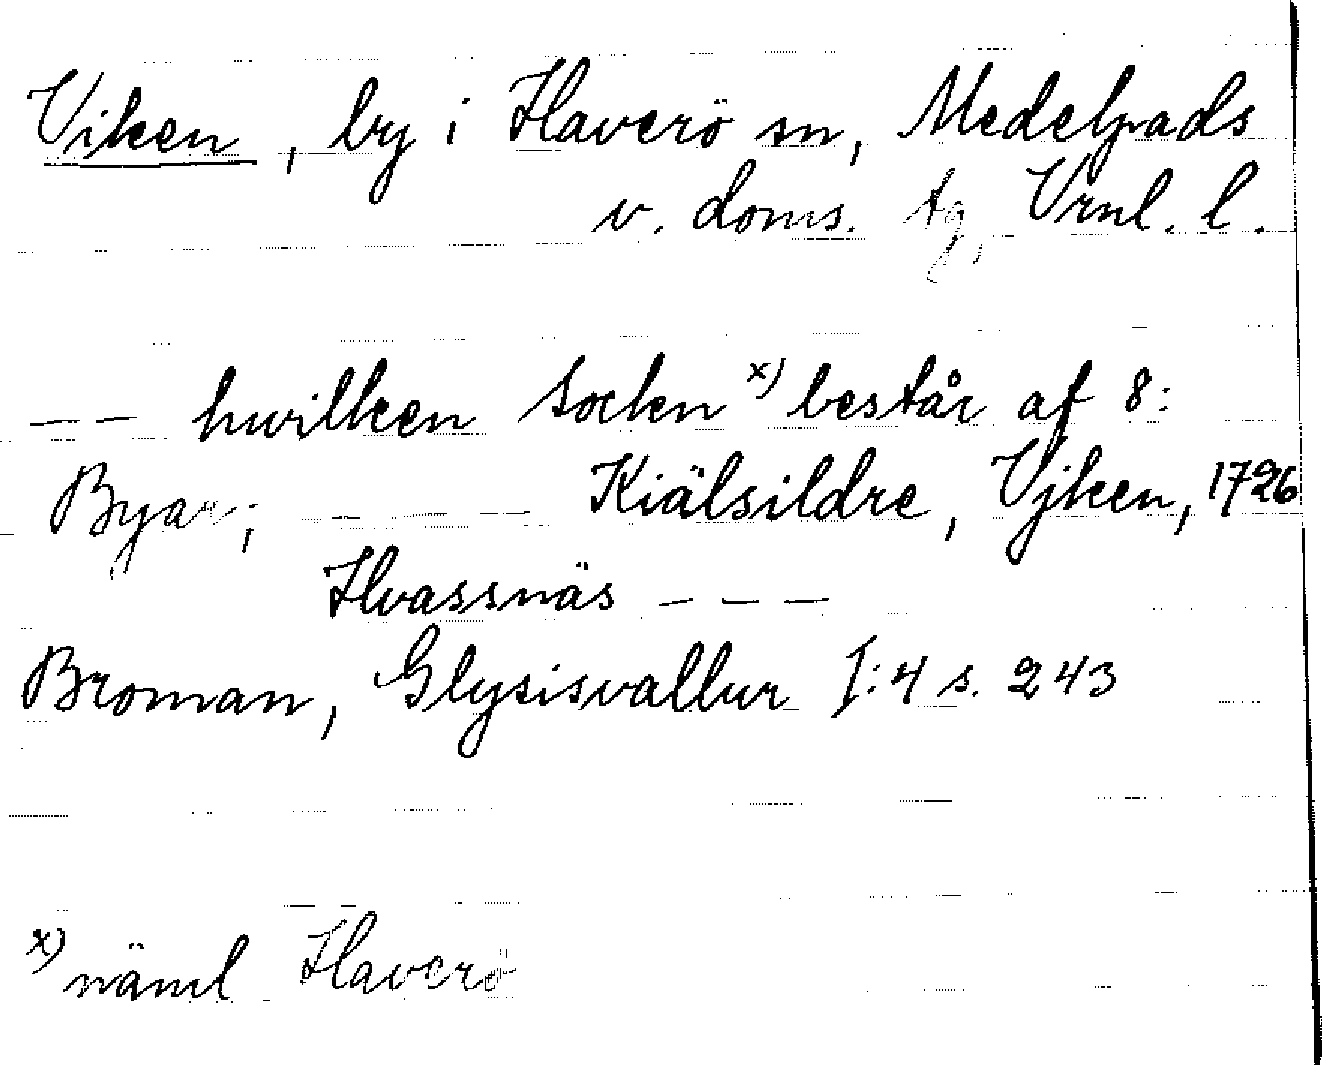 Viken, by i Haverö sn, Medelpads
v. doms. tg, Vrnl. l.
-- hwilken Socken x) består af 8:
Byar; --- Kiälsildre, Vjken, 1726
Hvassnäs ---
Broman, Glysisvallur I:4 s. 243
x) näml Haverö